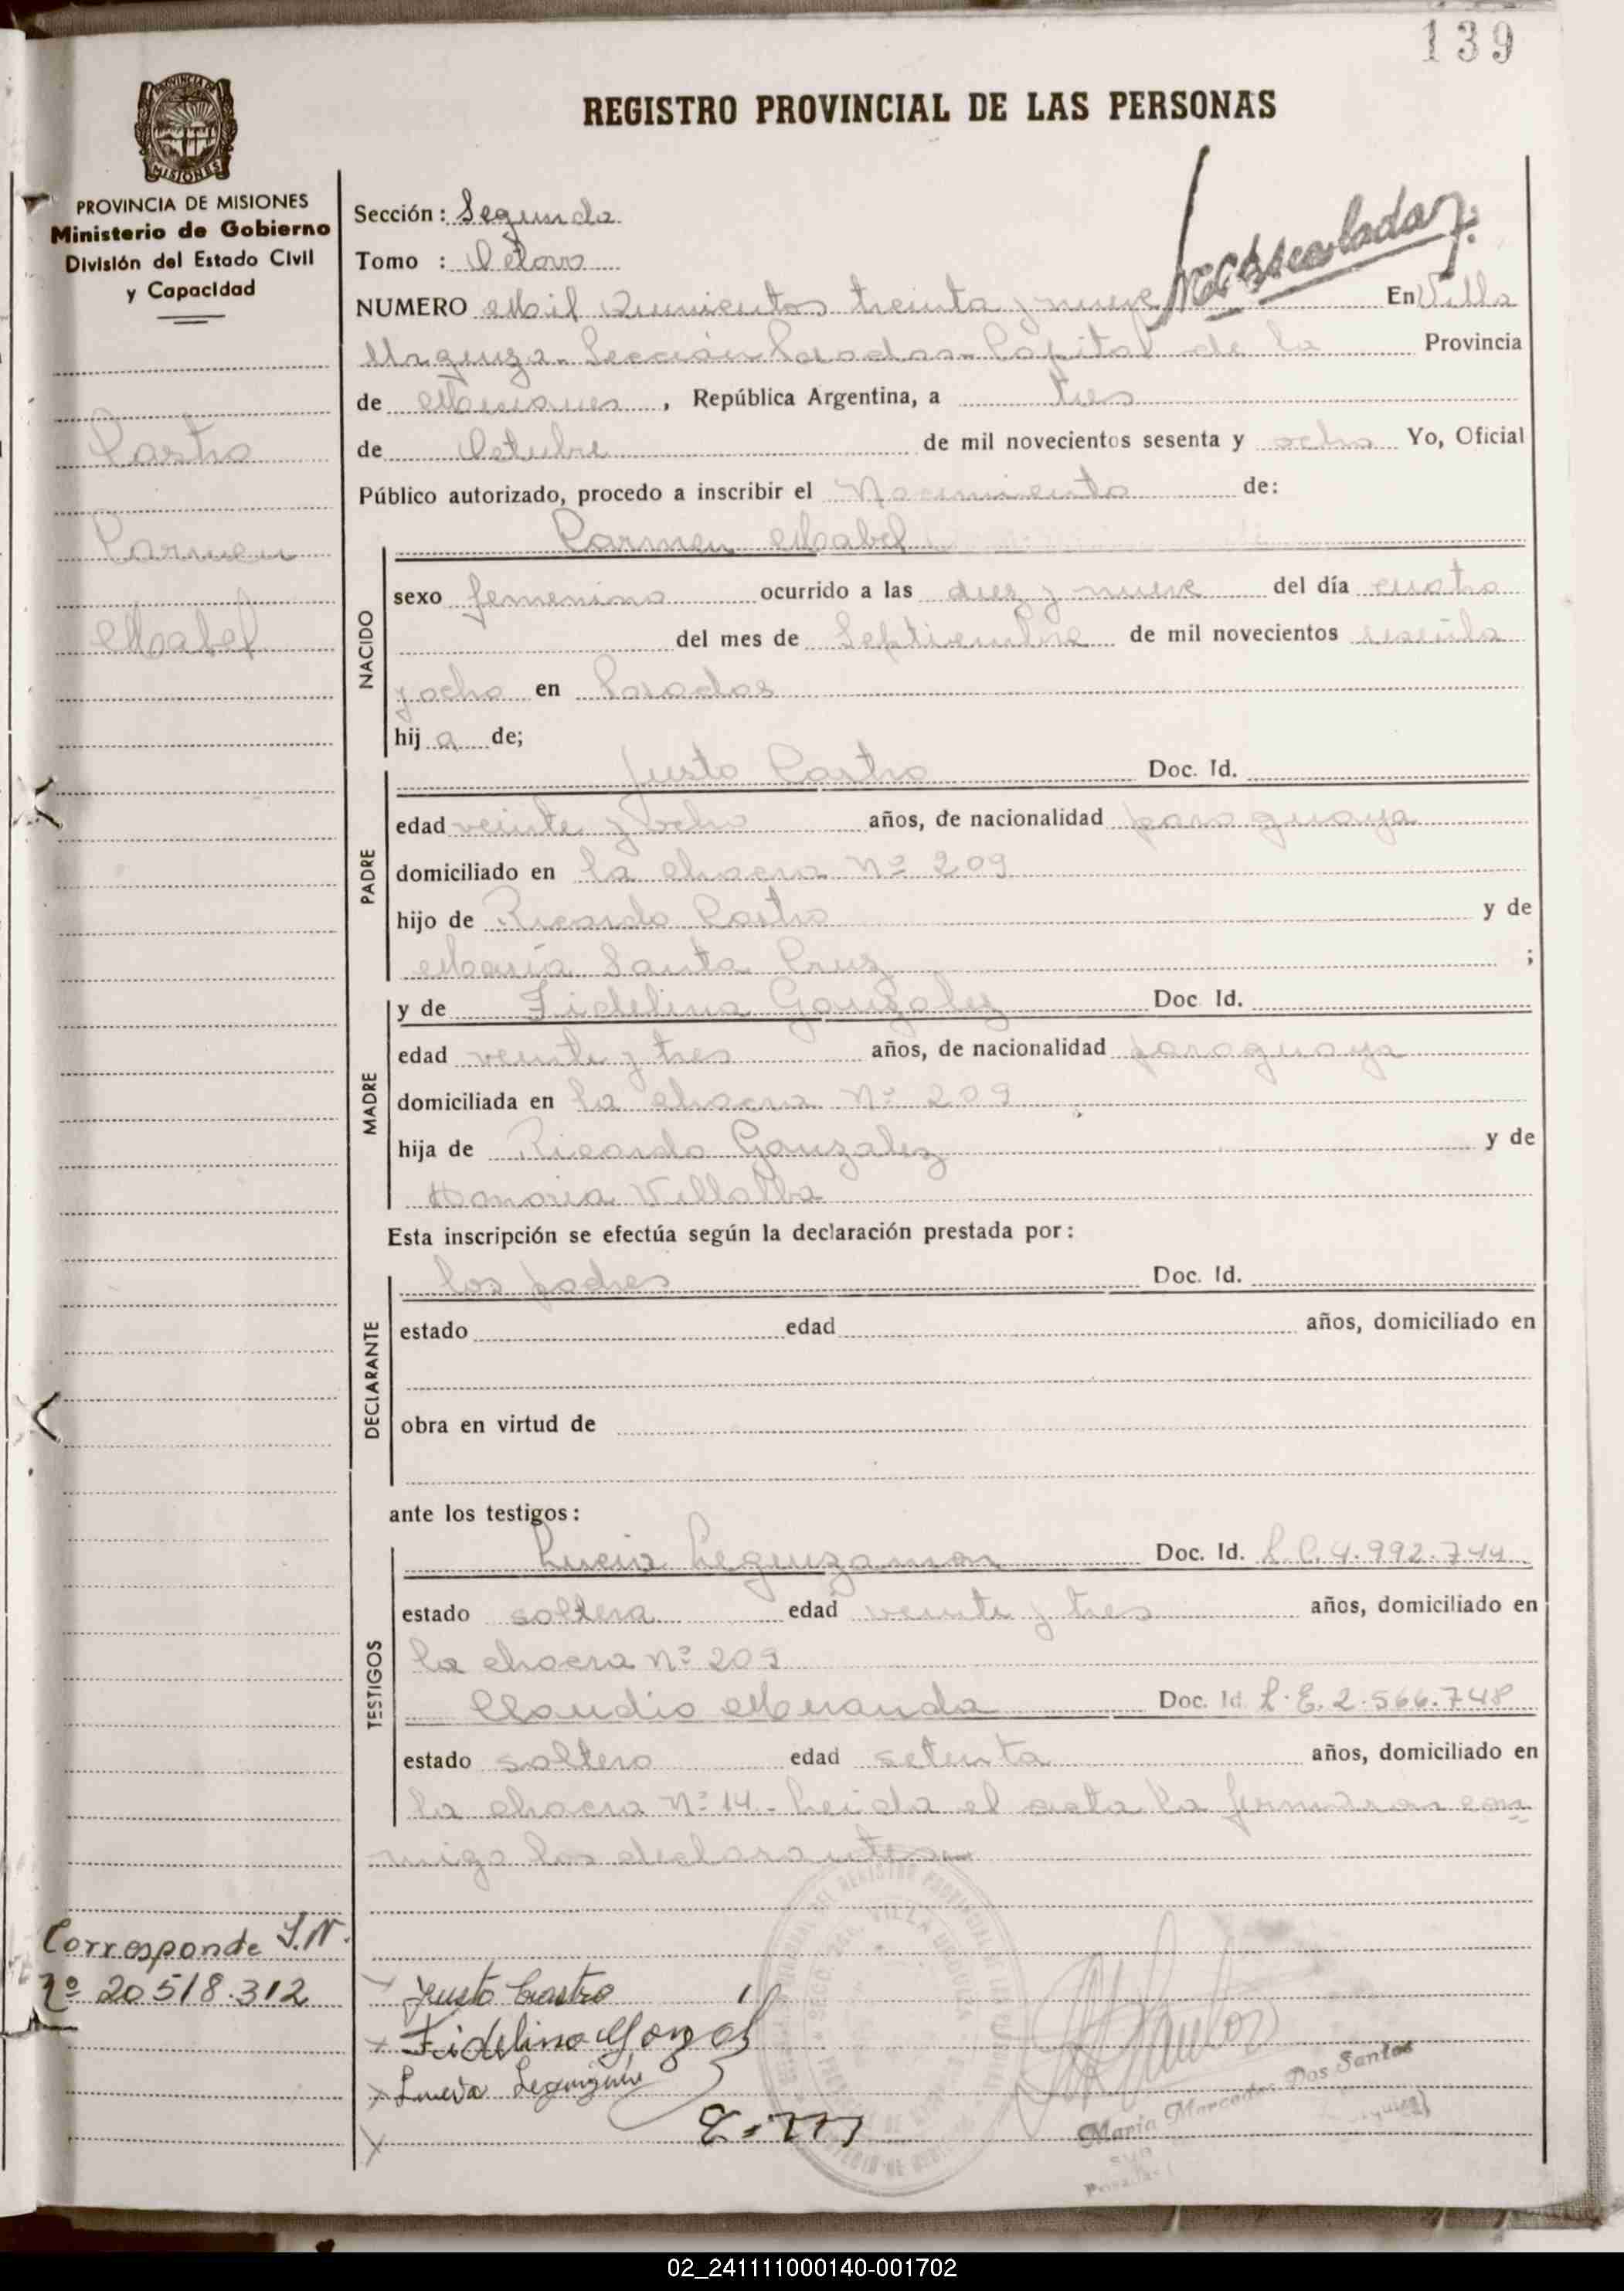 139
REGISTRO PROVINCIAL DE LAS PERSONAS
PROVINCIA DE MISIONES
MISIONES
PROVINCIA DE MISIONES
Ministerio de Gobierno
División del Estado Civil
y Capacidad
Castro
Carmen
Mabel
Corresponde I.N.
Nº 20518.312
Sección: Segunda
Tomo : Octavo
NUMERO Mil Quinientos treinta y nueve En Villa
Urquiza. Sección Posadas. Capital de la Provincia
de Misiones, República Argentina, a tres
de Octubre de mil novecientos sesenta y ocho Yo, Oficial
Público autorizado, procedo a inscribir el Nacimiento de:
NACIDO
Carmen Mabel
sexo femenino ocurrido a las diez y nueve del día cuatro
del mes de Septiembre de mil novecientos sesenta
y ocho en Posadas
hij a de;
PADRE
Justo Castro Doc. Id.
edad veinte y ocho años, de nacionalidad paraguaya
domiciliado en la chacra Nº 209
hijo de Ricardo Castro y de
María Santa Cruz ;
MADRE
y de Fidelina Gonzalez Doc Id.
edad veinte y tres años, de nacionalidad paraguaya
domiciliada en la chacra Nº 209
hija de Ricardo Gonzalez y de
Honoria Villalba
Esta inscripción se efectúa según la declaración prestada por:
DECLARANTE
los padres Doc. Id.
estado edad años, domiciliado en
obra en virtud de
ante los testigos:
TESTIGOS
Lucia Leguizamon Doc. Id. L.C.4.992.744
estado soltera edad veinte y tres años, domiciliado en
la chacra Nº 209
Claudio Miranda Doc. Id L.E.2.566.748
estado soltero edad setenta años, domiciliado en
la chacra Nº 14. Leida el acta la firmaron con
migo los declarantes
Justo Castro
Fidelina Gonzal
Lucia
Maria Mercedes Dos Santos
02_241111000140-001702